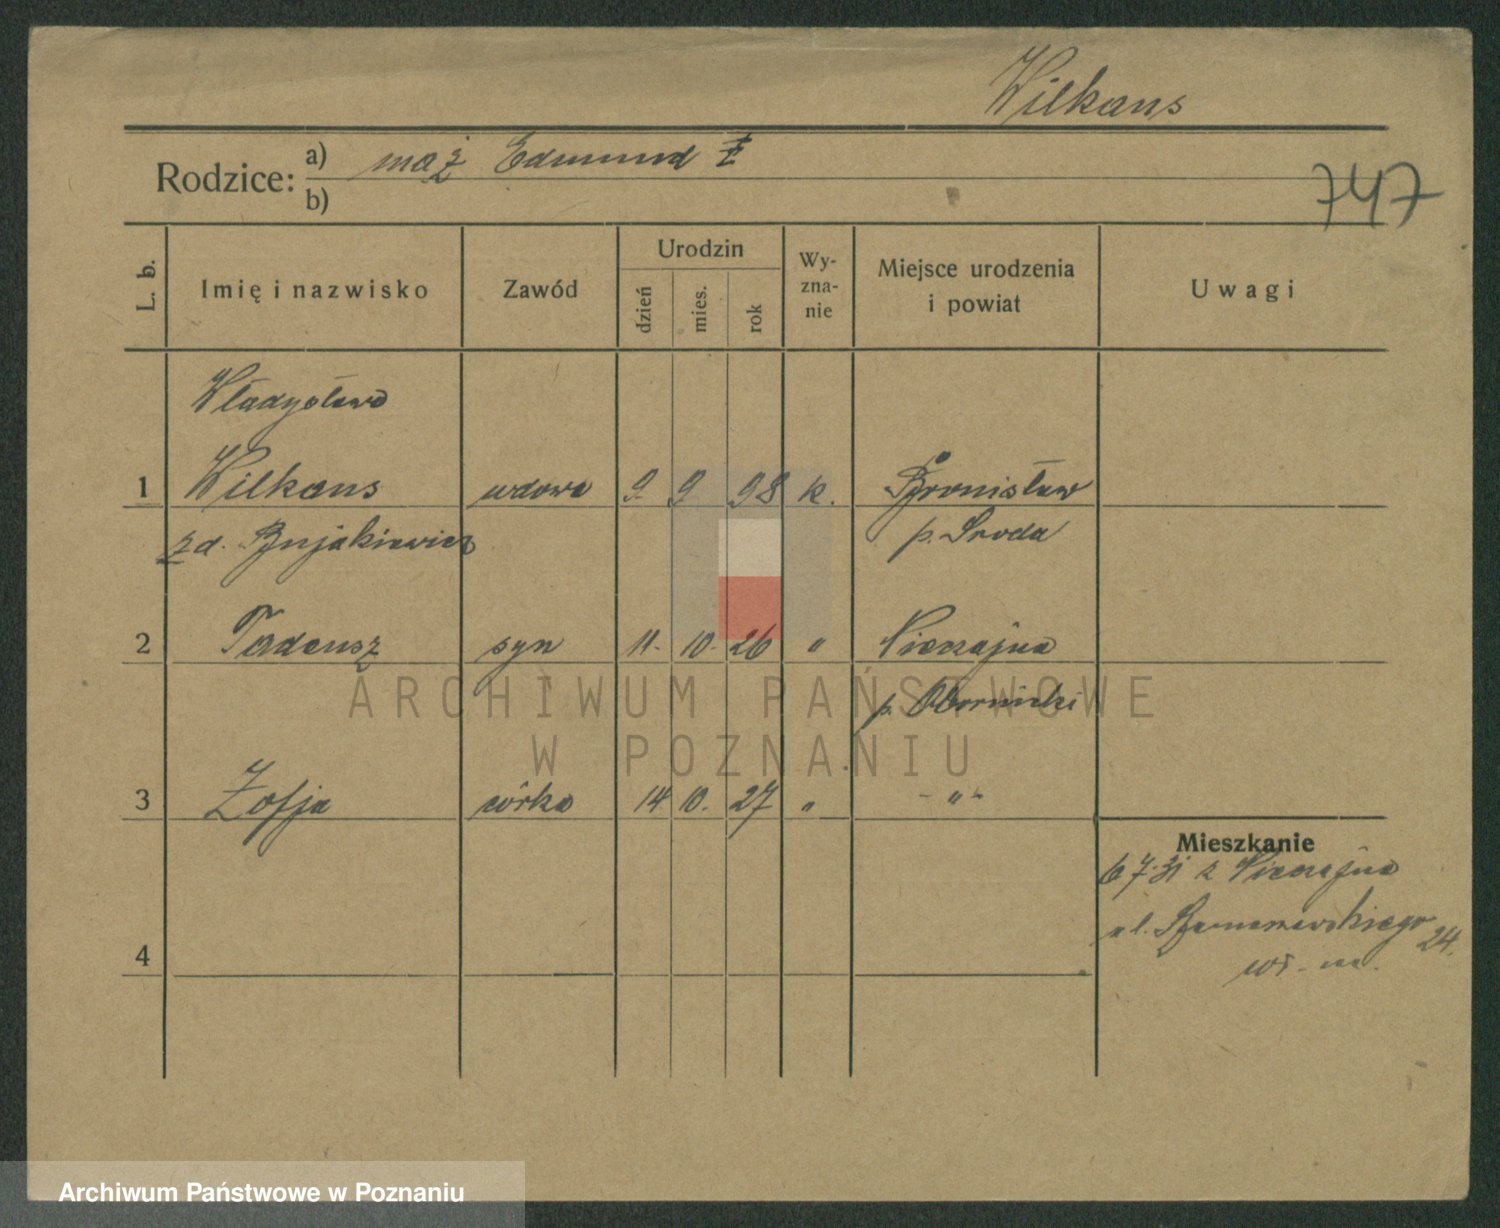 Wilkans
Rodzice: a) mąż Edmund ‡
b)
747
L. b. Imię i nazwisko Zawód Urodzin dzień mies. rok Wy-zna-nie Miejsce urodzenia i powiat Uwagi
Władysława
1 Wilkans wdowa 9. 9 98 k. Bronisław
zd. Bujakiewicz p. Środa
2 Tadeusz syn 11. 10. 26 " Nieczajna
p. Obornicki
3 Zofja córka 14 10. 27 " - " -
Mieszkanie
6 7.31 z Nieczajna
4 ul. Szamarzewskiego 24.
ARCHIWUM PAŃSTWOWE
W POZNANIU
Archiwum Państwowe w Poznaniu